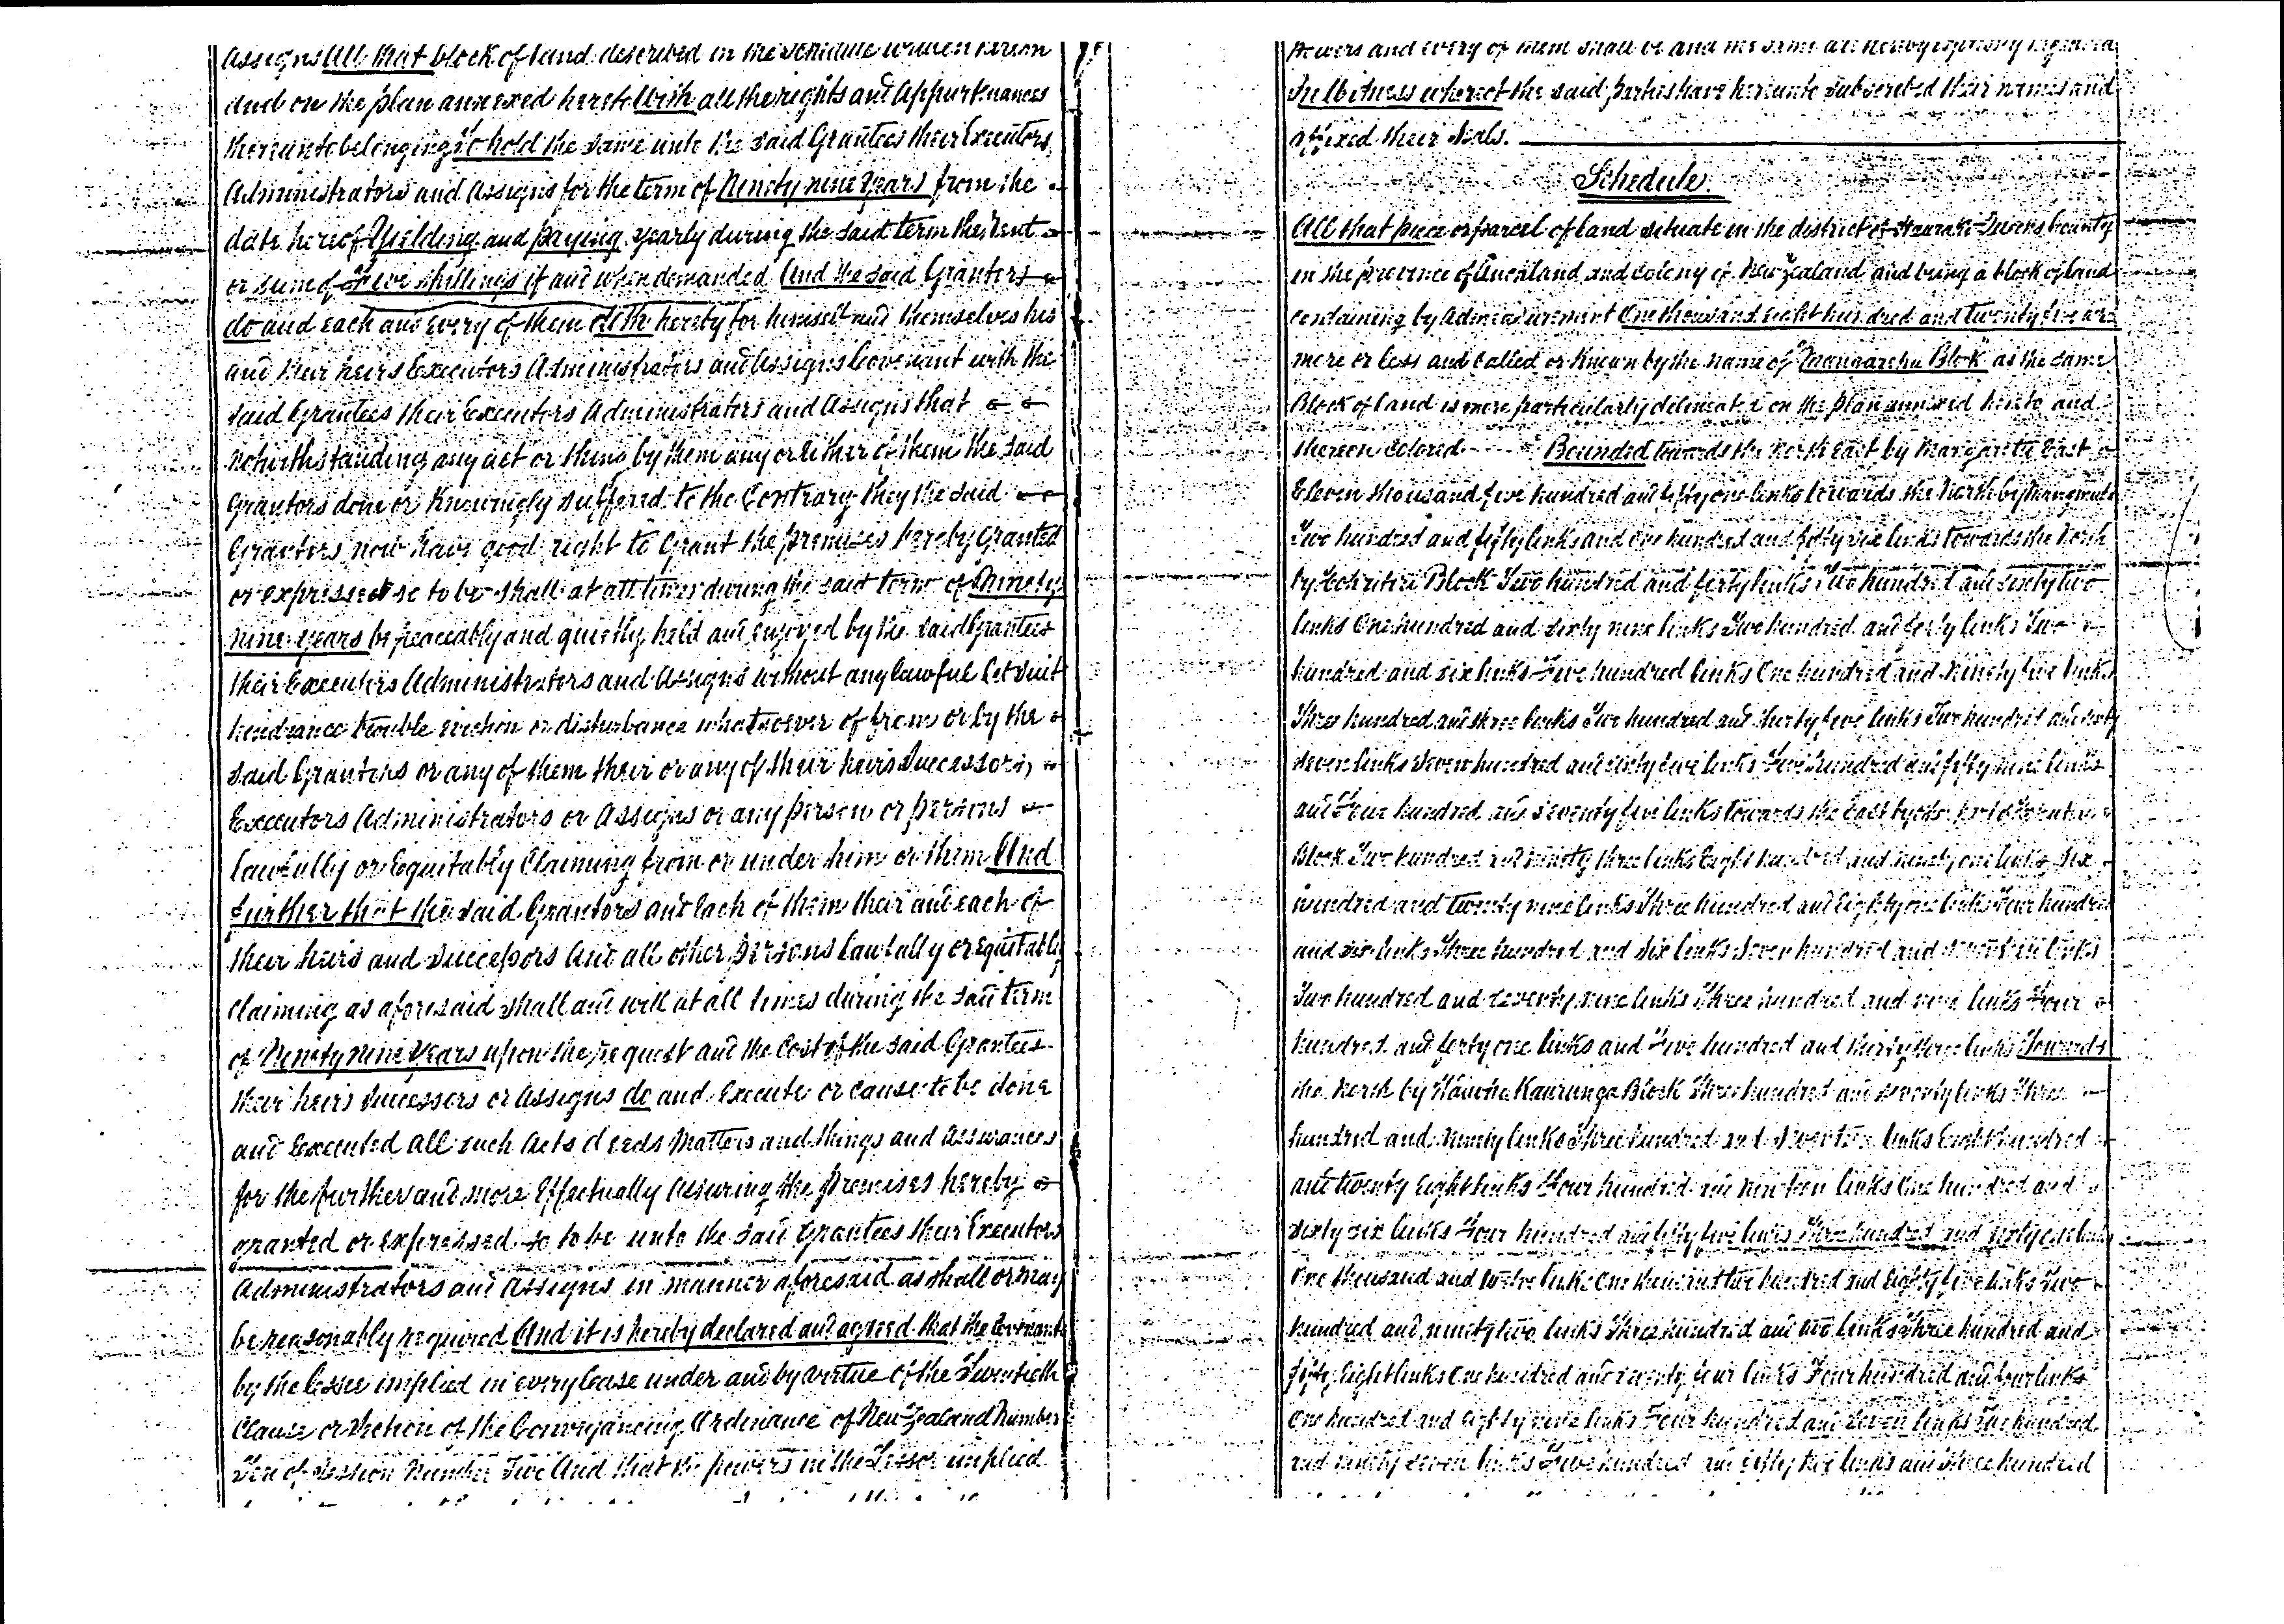 Assigns All that block of land described in the Schedule written hereon
and on the plan annexed hereto With all the rights and Appurtenances
thereunto belonging To hold the same unto the said Grantees their Executors
Administrators and Assigns for the term of Ninety nine Years from the
date hereof Yielding and paying yearly during the said term the Rent
or sum of Five shillings if and when demanded And the said Grantors
do and each and every of them doth hereby for himself and themselves his
and their heirs Executors Administrators and Assigns Covenant with the
said Grantees their Executors Administrators and Assigns that
notwithstanding any act or thing by them any or either of them the said
Grantors done or knowingly suffered to the Contrary they the said
Grantors now have good right to Grant the premises hereby granted
or expressed so to be shall at all times during the said term of Ninety
nine years be peaceably and quietly held and enjoyed by the said Grantees
their Executors Administrators and Assigns without any lawful let suit
hindrance trouble eviction or disturbance whatsoever of from or by the
said Grantors or any of them their or any of their heirs Successors,
Executors Administrators or Assigns or any person or persons
lawfully or Equitably Claiming from or under him or them And
further that the said Grantors and each of them their and each of
their heirs and Successors And all other persons lawfully or equitably
claiming as aforesaid shall and will at all times during the said term
of Ninety nine Years upon the request and the Cost of the said Grantees
their heirs Successors or Assigns do and Execute or cause to be done
and Executed all such Acts deeds Matters and things and Assurances
for the further and more Effectually Assuring the premises hereby
granted or expressed so to be unto the said Grantees their Executors
Administrators and Assigns in manner aforesaid as shall or may
be reasonably required And it is hereby declared and agreed that the Covenants
by the lessee implied in every lease under and by virtue of the Twentieth
Clause or Section of the Conveyancing Ordinance of New Zealand Number
Ten of Session Number Two And that the powers in the Lessor implied
Powers and every of them shall be and the same are hereby expressly
In Witness whereof the said parties have hereunto subscribed their names and
affixed their Seals.
Schedule.
All that piece or parcel of land situate in the district of Hauraki Queens County
in the province of Auckland and Colony of New Zealand and being a block of land
containing by Admeasurement One thousand eight hundred and twenty five
more or less and called or known by the name of Block" as the same
Block of land is more particularly delineated on the plan annexed hereto and
thereon Colored Bounded towards the North East by East
Eleven thousand five hundred and fifty one links towards the North by
Two hundred and fifty links and One hundred and fifty six links towards the North
by Block Two hundred and forty links Two hundred and sixty two
links One hundred and sixty nine links Two hundred and forty links Two
hundred and six links Five hundred links One hundred and Ninety five links
Three hundred and three links Two hundred and thirty five links Two hundred and
seven links Seven hundred and sixty five links Five hundred and fifty nine links
and Four hundred and seventy five links towards the East by
Block Two hundred and ninety three links Eight hundred and ninety one links Six
hundred and twenty nine links Three hundred and Eighty one links Four hundred
and six links Three hundred and Six links Seven hundred and links
Two hundred and seventy nine links Three hundred and nine links Four
hundred and forty one links and Five hundred and thirty three links Towards
the North by Block Three hundred and seventy links Three
hundred and ninety links Three hundred and links Eight hundred
and twenty Eight links Four hundred and Nineteen links One hundred and
sixty six links Four hundred and fifty five links Three hundred and sixty
One thousand and twelve links One thousand two hundred and Eighty five links Two
hundred and ninety two links Three hundred and two links Three hundred and
fifty Eight links One hundred and seventy four links Four hundred and four links
One hundred and Eighty nine links Four hundred and seven links hundred
and ninety seven links Five hundred and six links and Three hundred